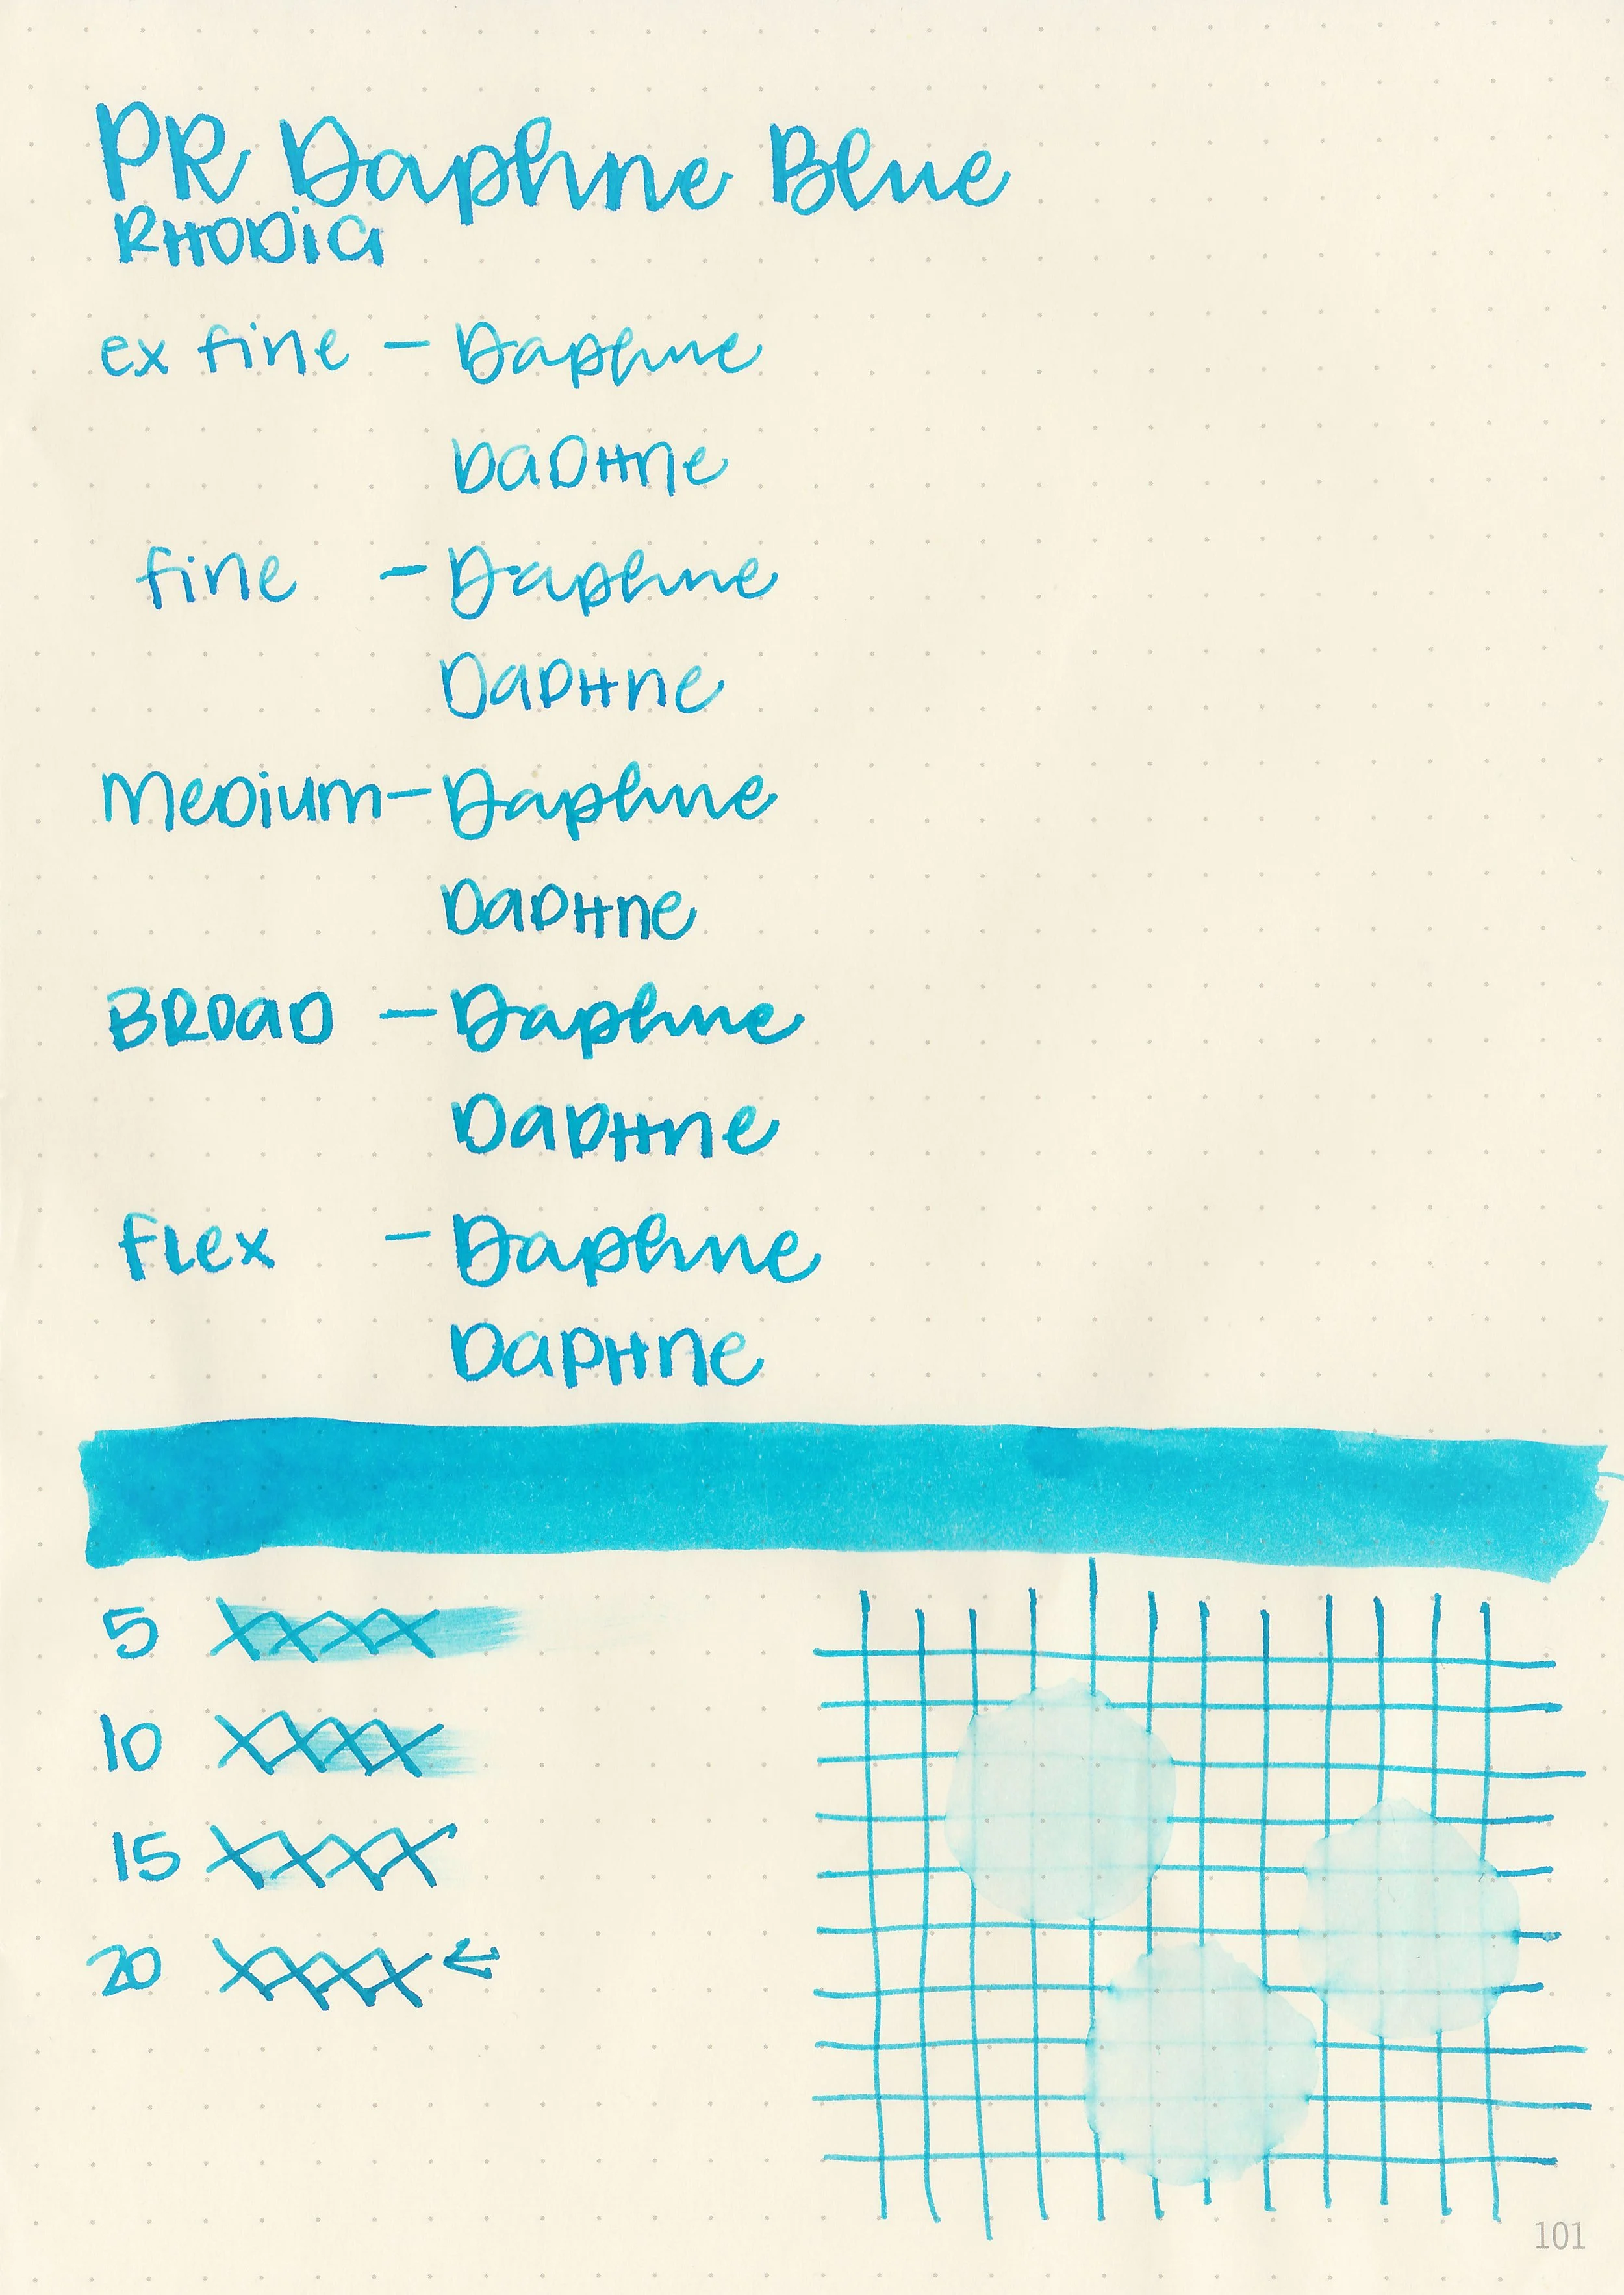 PR Daphne Blue
RHODia
ex fine - Daphne
DaPHne
fine - Daphne
DaPHne
Medium - Daphne
DaPHne
BROaD - Daphne
DaPHne
fLex - Daphne
DaPHne
5 XXXX
10 XXXX
15 XXXX
20 XXXX ←
101